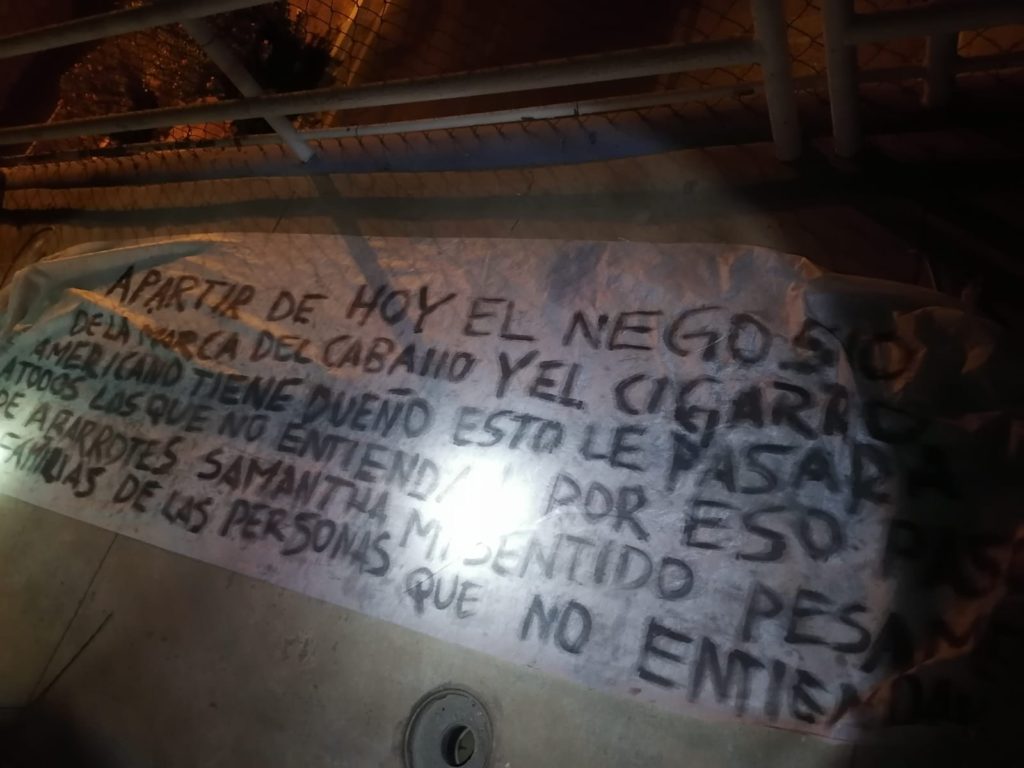 APARTIR DE HOY EL NEGOSIO
DE LA MARCA DEL CABAllO Y EL CIGARRO
AMERICANO TIENE DUEÑO ESTO LE PASARA
ATODOS LOS QUE NO ENTIENDAN POR ESO
DE ABARROTES SAMANTHA MI SENTIDO PESAME
FAMILIAS DE LAS PERSONAS QUE NO ENTIENDAN